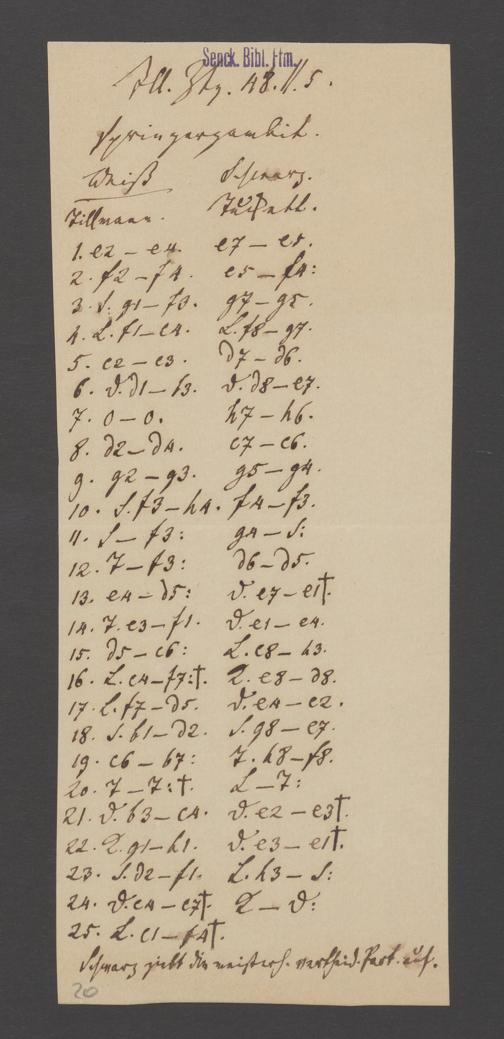 Senck. Bibl. Ffm.
Ill. Ztg. 48. II. 5.
Springergambit.
Weiß Schwarz.
Tillmann.
1. e2 – e4. e7 – e5.
2. f2 – f4. e5 – f4:
3. S. g1 – f3. g7 – g5.
4. L. f1 – c4. L. f8 – g7.
5. c2 – c3. d7 – d6.
6. D. d1 – b3. D. d8 – e7.
7. 0 – 0. h7 – h6.
8. d2 – d4. c7 – c6.
9. g2 – g3. g5 – g4.
10. S. f3 – h4. f4 – f3.
11. S – f3: g4 – S:
12. T – f3: d6 – d5.
13. e4 – d5: D. e7 – e1†.
14. T. e3 – f1. D. e1 – e4.
15. d5 – c6: L. c8 – h3.
16. L. c4 – f7:†. K. e8 – d8.
17. L. f7 – d5. D. e4 – e2.
18. S. b1 – d2. S. g8 – e7.
19. c6 – b7: T. h8 – f8.
20. T – T:†. L – T:
21. D. b3 – c4. D. e2 – e3†.
22. K. g1 – h1. D. e3 – e1†.
23. S. d2 – f1. L. h3 – S:
24. D. c4 – c7†. K – D:
25. L. c1 – f4†.
Schwarz giebt die meisterh. vertheid. Part. auf.
20